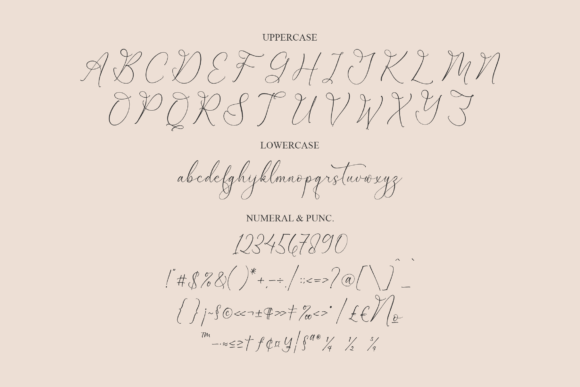 UPPERCASE
A B C D E F G H I J K L M N
O P Q R S T U V W X Y Z
LOWERCASE
abcdefghijklmnopqrstuvwxyz
NUMERAL & PUNC.
1234567890
!"#$%&( )*+,-.+./:;<=>?@[\]^_`
{ }¡~§©«¬±¶»‡‰<>°/£€№
™—≈≤≥†ƒ¢¤¥|§ªº¼ ½ ¾